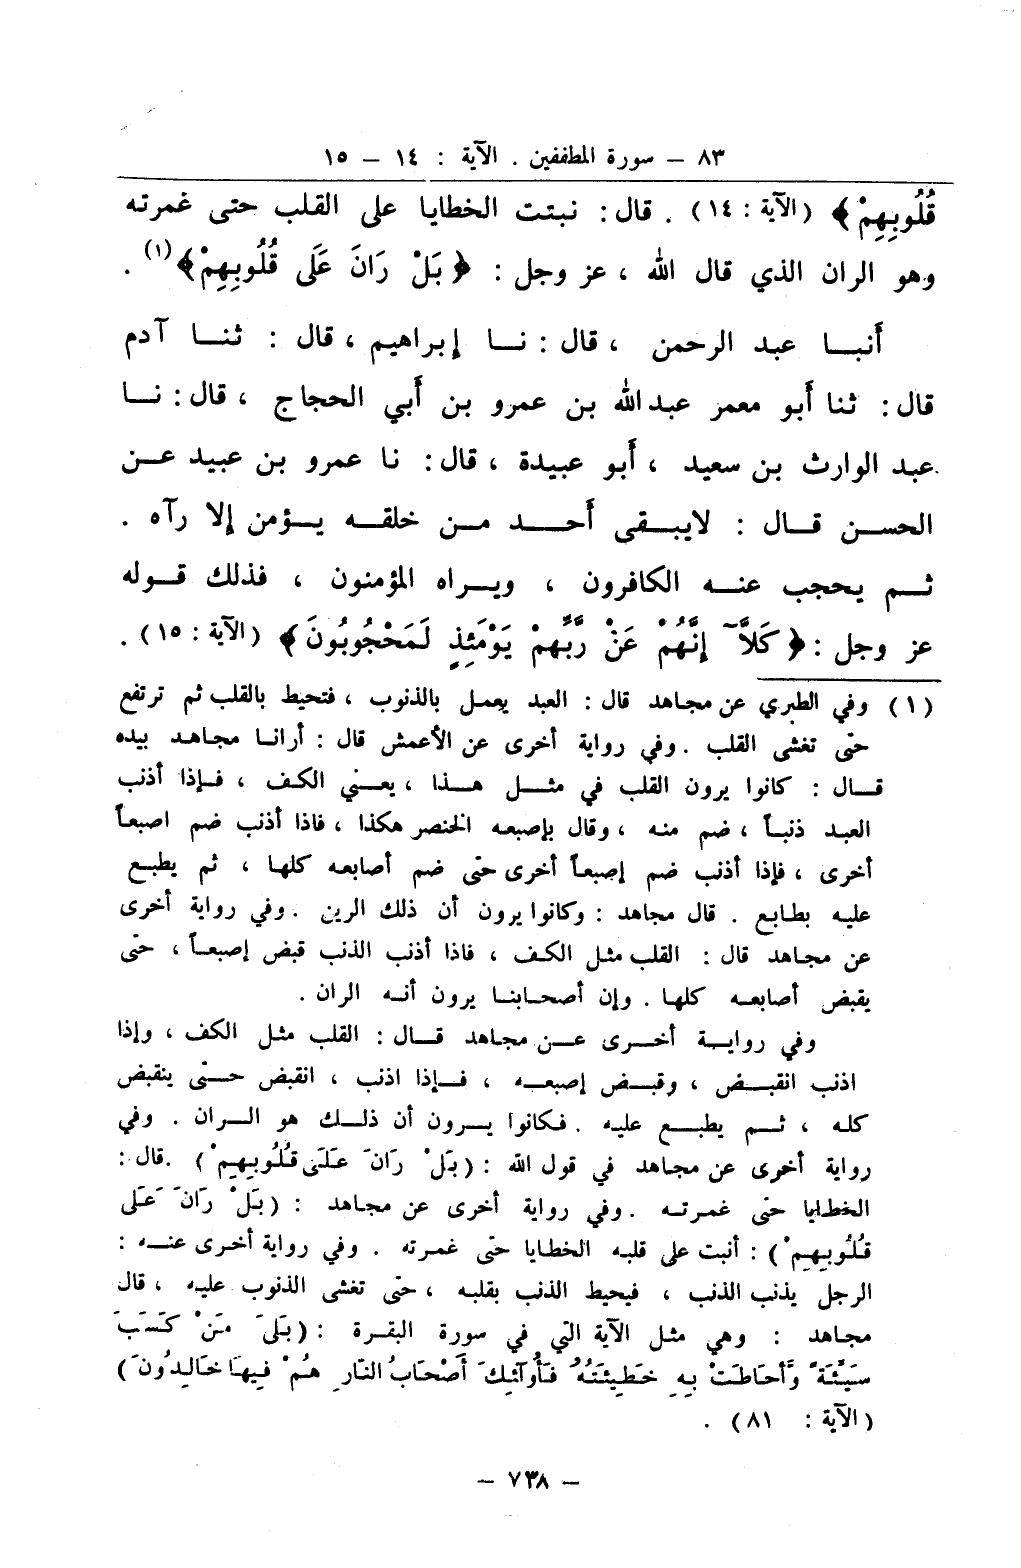 ٨٣ – سورة المطففين . الآية : ١٤ – ١٥
قُلُوبِهِمْ﴾ (الآية : ١٤) . قال : نبتت الخطايا على القلب حتى غمرته
وهو الران الذي قال الله ، عز وجل : ﴿ بَلْ رَانَ عَلَى قُلُوبِهِمْ﴾(١) .
أَنبا عبد الرحمن ، قال : نا إبراهيم ، قال : ثنا آدم
قال : ثنا أَبو معمر عبدالله بن عمرو بن أَبي الحجاج ، قال : نا
عبد الوارث بن سعيد ، أَبو عبيدة ، قال : نا عمرو بن عبيد عن
الحسن قال : لايبقى أَحد من خلقه يؤمن إلا رآه .
ثم يحجب عنه الكافرون ، ويراه المؤمنون ، فذلك قوله
عز وجل : ﴿ كَلاَّ إِنَّهُمْ عَنْ رَّبِّهِمْ يَوْمَئِذٍ لَمَحْجُوبُونَ ﴾ (الآية : ١٥) .
(١) وفي الطبري عن مجاهد قال : العبد يعمل بالذنوب ، فتحيط بالقلب ثم ترتفع
حتى تغشى القلب . وفي رواية أخرى عن الأعمش قال : أرانا مجاهد بيده
قال : كانوا يرون القلب في مثل هذا ، يعني الكف ، فإذا أذنب
العبد ذنباً ، ضم منه ، وقال بإصبعه الخنصر هكذا ، فاذا أذنب ضم اصبعاً
أخرى ، فإذا أذنب ضم إصبعاً أخرى حتى ضم أصابعه كلها ، ثم يطبع
عليه بطابع . قال مجاهد : وكانوا يرون أن ذلك الرين . وفي رواية أخرى
عن مجاهد قال : القلب مثل الكف ، فاذا أذنب الذنب قبض إصبعاً ، حتى
يقبض أصابعه كلها . وإن أصحابنا يرون أنه الران .
وفي رواية أخرى عن مجاهد قال : القلب مثل الكف ، وإذا
اذنب انقبض ، وقبض إصبعه ، فإذا اذنب ، انقبض حتى ينقبض
كله ، ثم يطبع عليه . فكانوا يرون أن ذلك هو الران . وفي
رواية أخرى عن مجاهد في قول الله : (بَلْ رَانَ عَلَى قُلُوبِهِمْ) . قال :
الخطايا حتى غمرته . وفي رواية أخرى عن مجاهد : (بَلْ رَانَ عَلَى
قُلُوبِهِمْ) : أنبت على قلبه الخطايا حتى غمرته . وفي رواية أخرى عنه :
الرجل يذنب الذنب ، فيحيط الذنب بقلبه ، حتى تغشى الذنوب عليه ، قال
مجاهد : وهي مثل الآية التي في سورة البقرة : (بَلَى مَنْ كَسَبَ
سَيِّئَةً وَّأَحَاطَتْ بِهِ خَطِيئَتُهُ فَأُولَٰئِكَ أَصْحَابُ النَّارِ هُمْ فِيهَا خَالِدُونَ)
(الآية : ٨١) .
– ٧٣٨ –